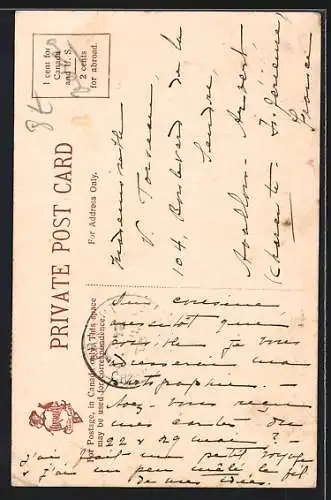 1 cent for
Canada
and U. S.
2 cents
for abroad.
PRIVATE POST CARD
For Address Only.
For Postage, in Canada only, this space
may be used for correspondence.
Mademoiselle
V.
104, Boulevard de la
(Charente-
France
cousine
aussitôt que
possible je vous
adresserai ma
photographie. —
Avez-vous reçu
mes cartes du
22 & 29 mai ? —
J'ai fait un petit voyage
& j'ai un peu mêlé le fil
de mes idées.